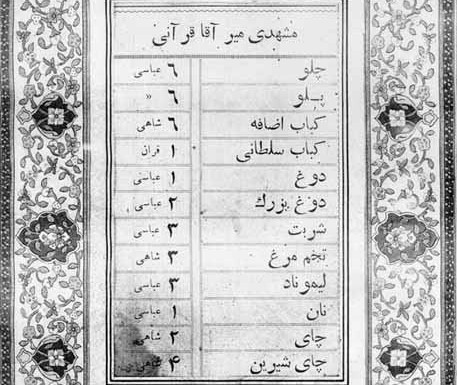 مشهدی میر آقا قرآنی
چلو ٦ عباسی
پلو ٦ »
کباب اضافه ٦ شاهی
کباب سلطانی ۱ قران
دوغ ۱ عباسی
دوغ بزرك ۲ عباسی
شربت ۳ عباسی
تخم مرغ ۳ شاهی
لیموناد ۳ عباسی
نان ۱ عباسی
چای ۲ شاهی
چای شیرین ۴ شاهی